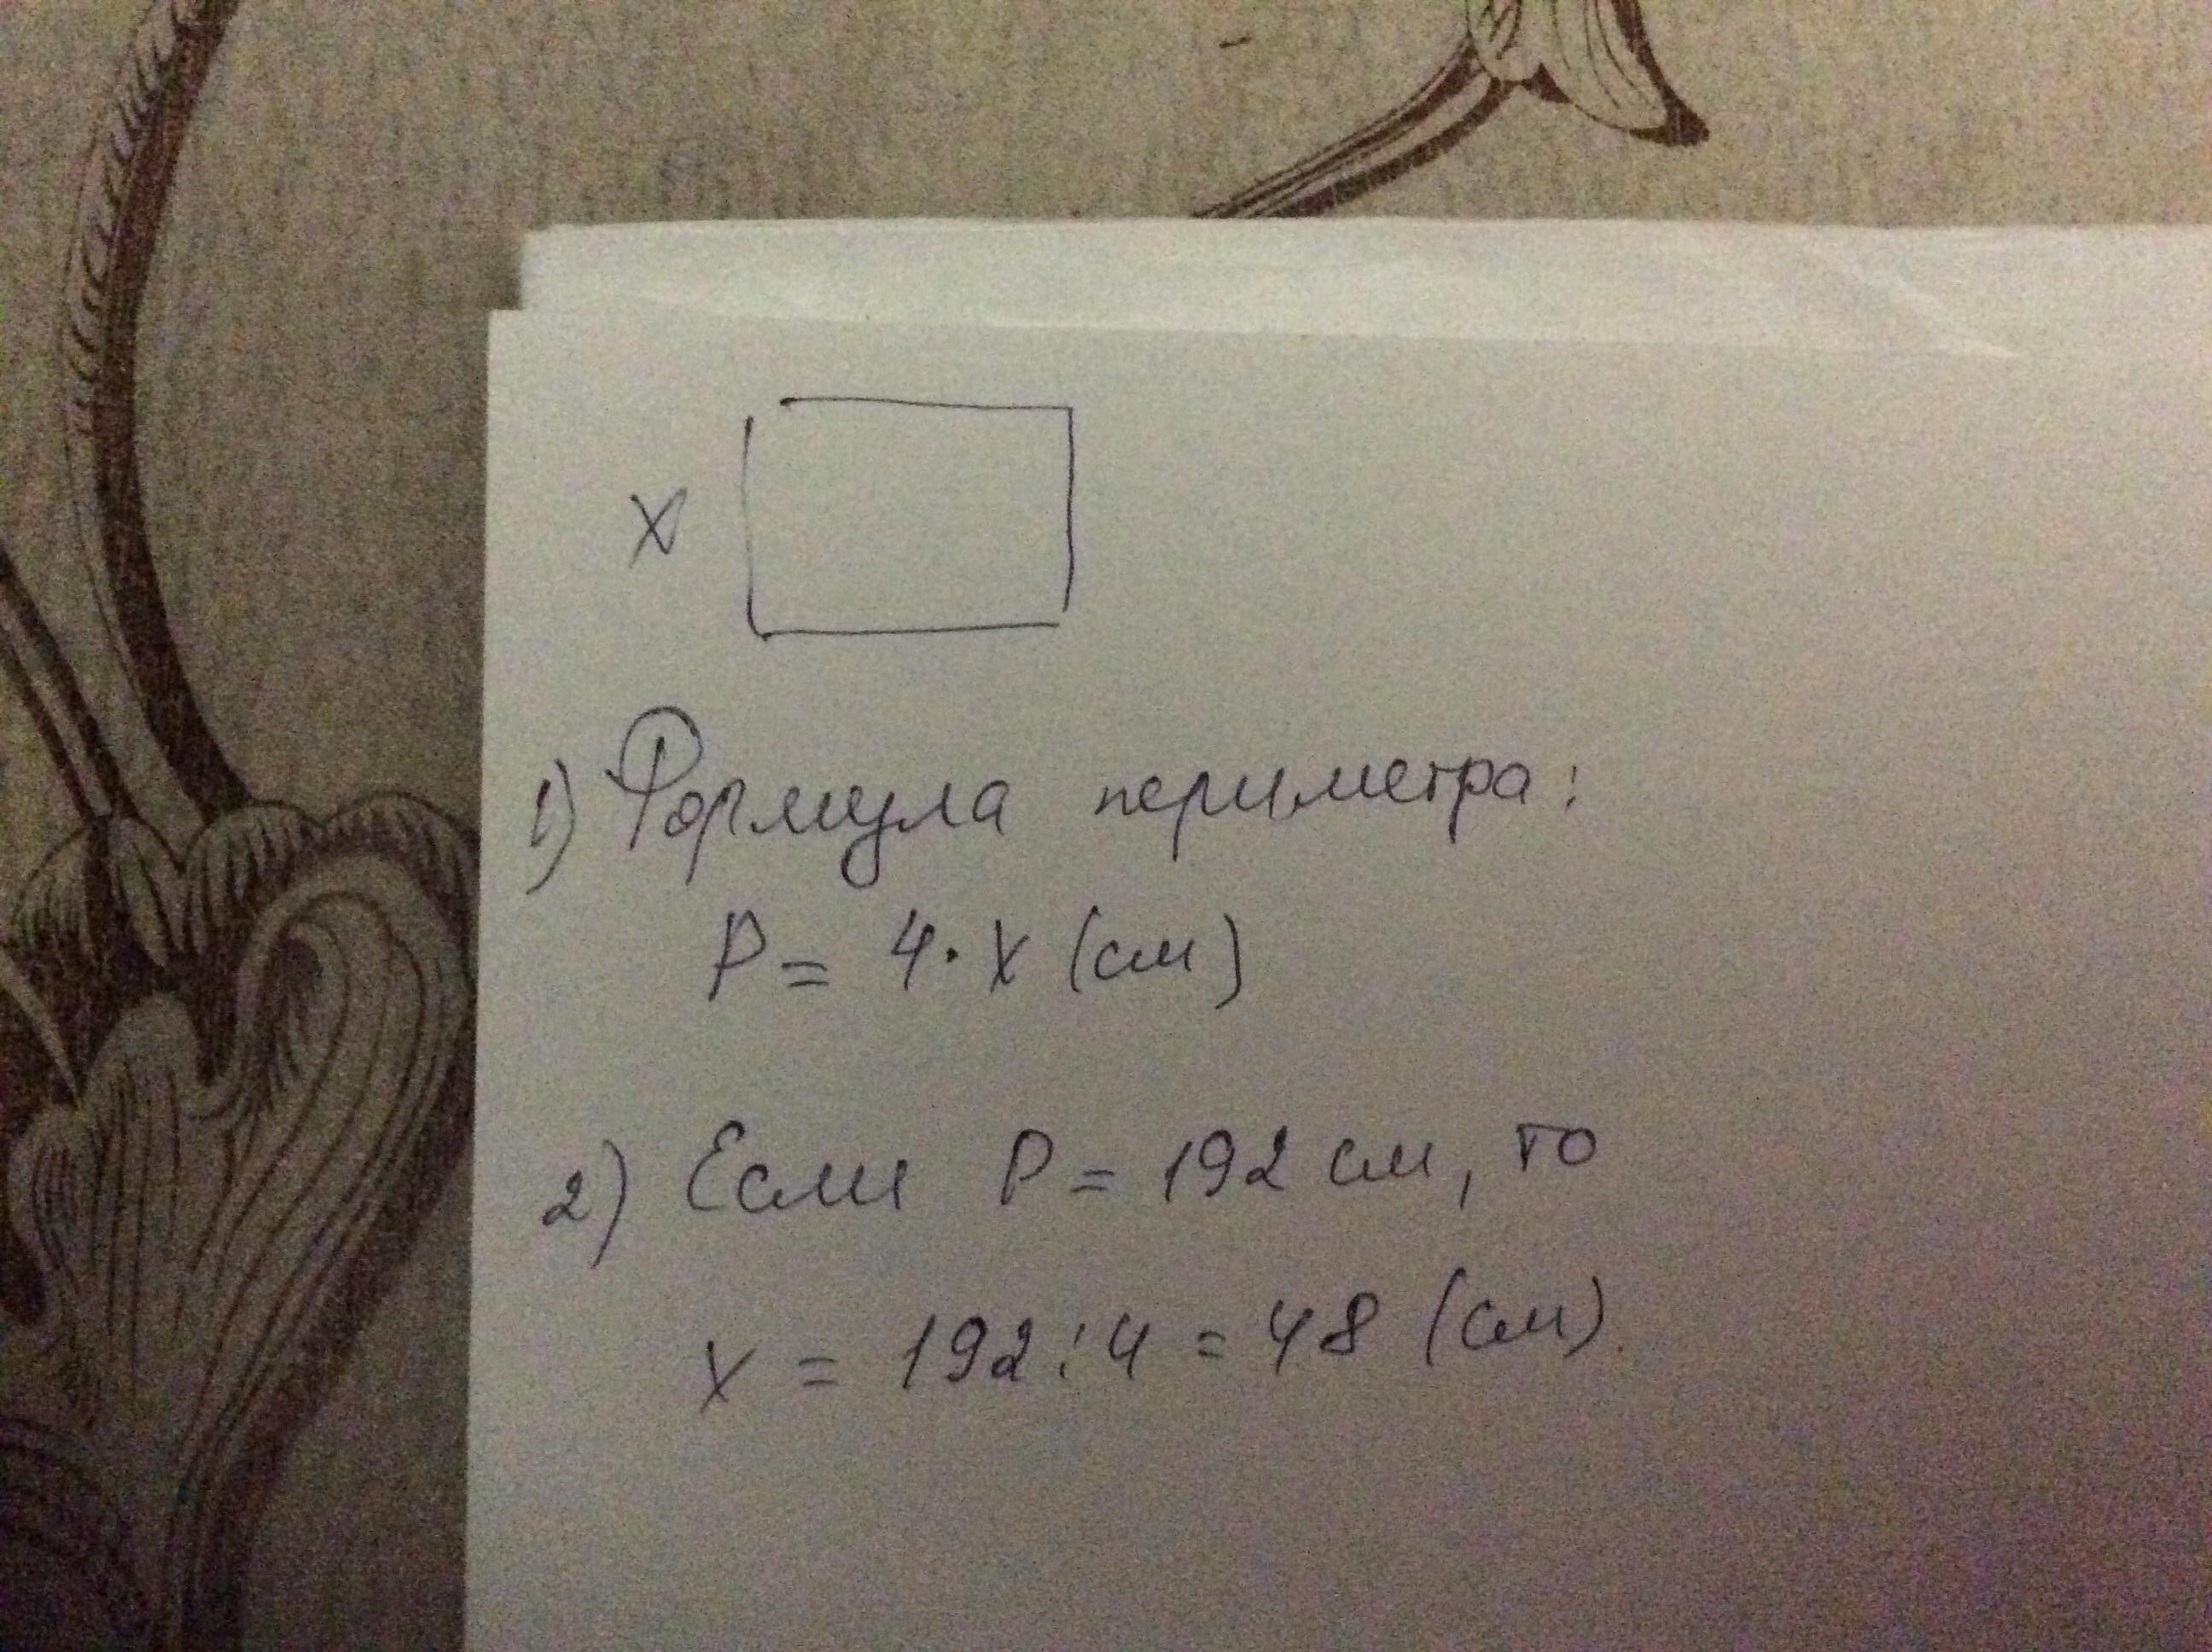 x
1) Формула периметра:
P = 4 · x (см)
2) Если P = 192 см, то
x = 192 : 4 = 48 (см).